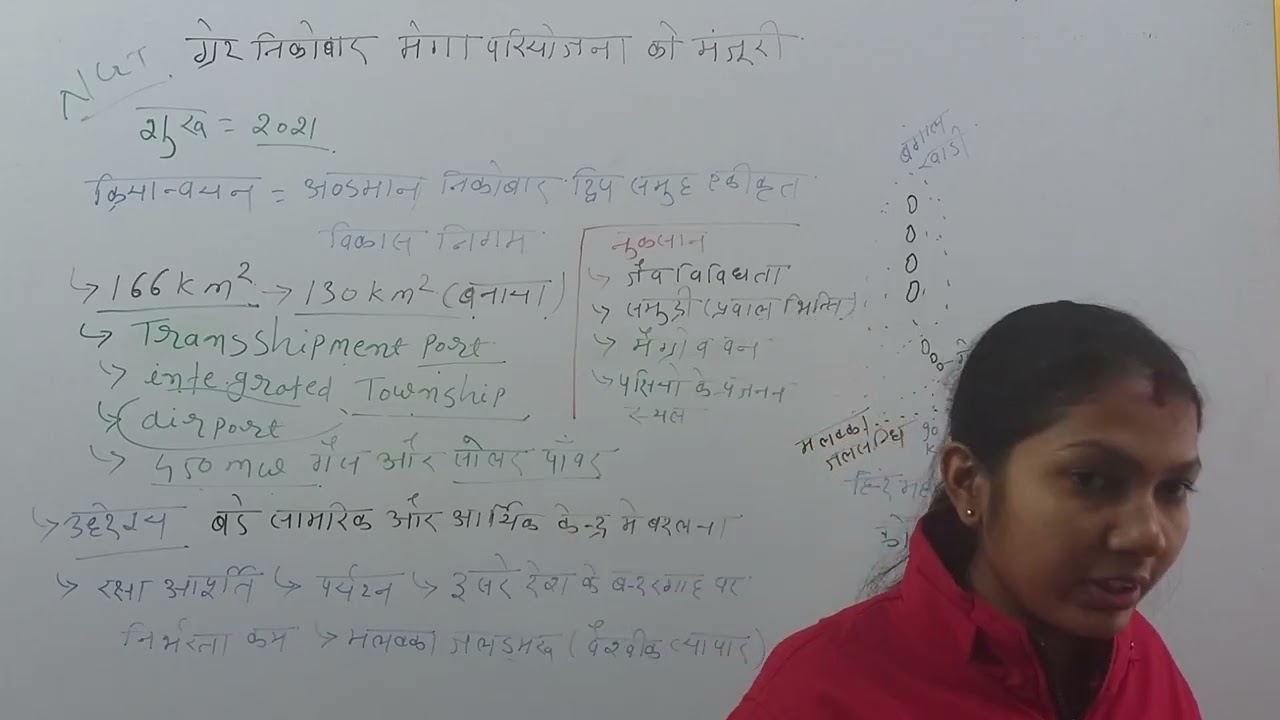 ग्रेट निकोबार मेगा परियोजना को मंजूरी
NGT
शुरू = 2021
क्रियान्वयन = अण्डमान निकोबार द्विप समुह एकीकृत
विकास निगम
↳ 166 km² → 130 km² (बनाया)
↳ Transshipment Port
↳ integrated Township
↳ airport
↳ 450 mw गैस और सोलर पॉवर
नुकसान
↳ जैव विविधता
↳ समुद्री (प्रवाल भित्ति)
↳ मैंग्रोव वन
↳ पक्षियो के प्रजनन
स्थल
बंगाल
खाड़ी
मलक्का
जलसंधि
↳ उद्देश्य बडे सामरिक और आर्थिक केन्द्र मे बदलना
↳ रक्षा आपूर्ति ↳ पर्यटन ↳ दूसरे देश के बन्दरगाह पर
निर्भरता कम ↳ मलक्का जलडमरू (वैश्वीक व्यापार)